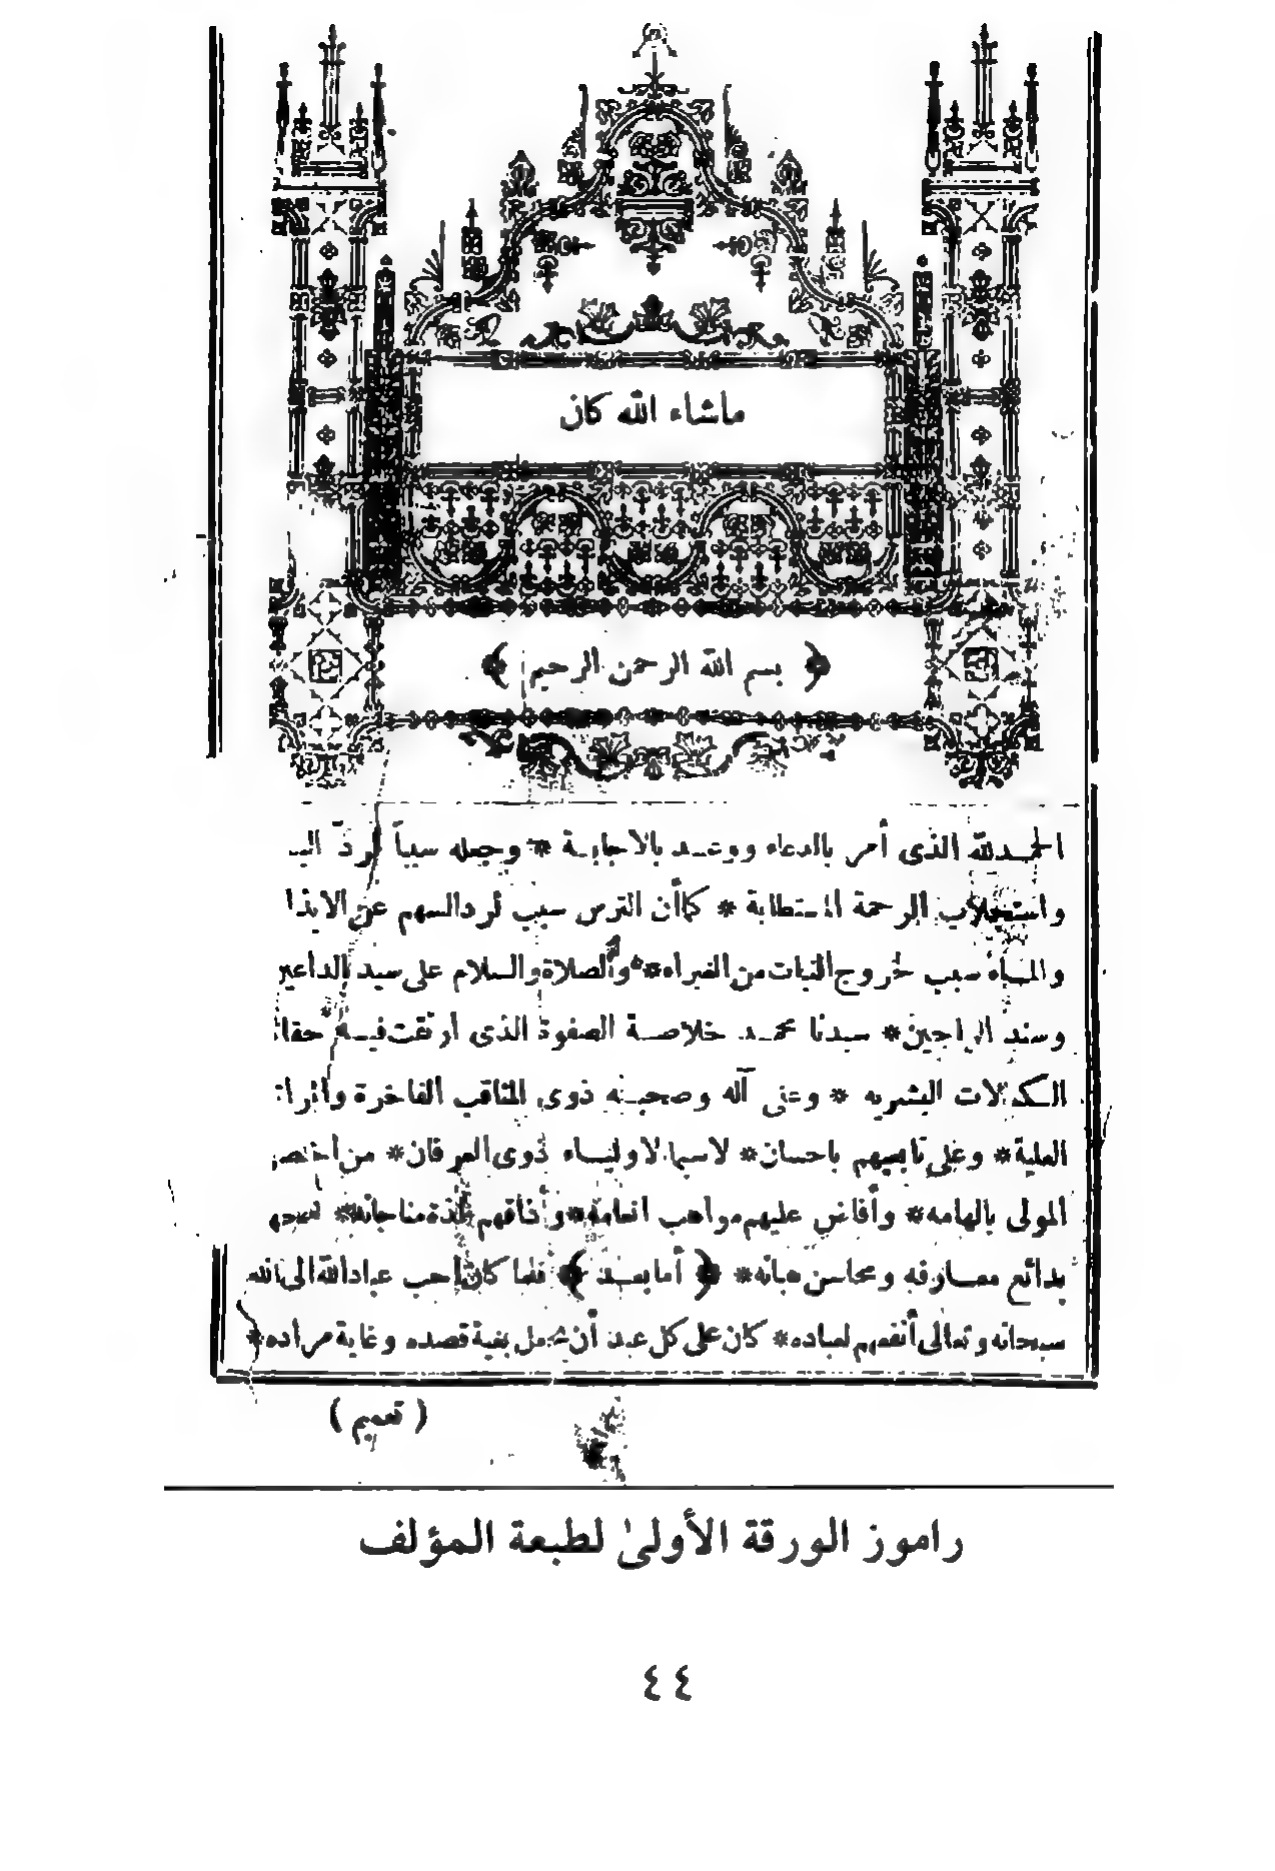 ماشاء الله كان
﴿ بسم الله الرحمن الرحيم ﴾
الحمدلله الذى أمر بالدعاء ووعد بالاجابة * وجعله سبباً لردّ
واستجلاب الرحمة المستطابة * كماأن الترس سبب لردالسهم عن
والماء سبب لخروج النبات من الغبراء * والصلاة والسلام على سيد
وسند الراجين * سيدنا محمد خلاصة الصفوة الذى ارتقت فيه
الكمالات البشريه * وعلى آله وصحبه ذوى المناقب الفاخرة
العلية * وعلى تابعيهم باحسان * لاسيما الاولياء ذوى العرفان * من
المولى بالهامه * وأفاض عليهم مواهب انعامه * وأذاقهم لذة مناجاته *
بدائع معارفه ومحاسن هباته * ﴿ أمابعد ﴾ فلما كان أحب عبادالله الى الله
سبحانه وتعالى أنفعهم لعباده * كان على كل عبد أن يجعل بغية قصده وغاية مراده *
( تعميم )
راموز الورقة الأولىٰ لطبعة المؤلف
٤٤